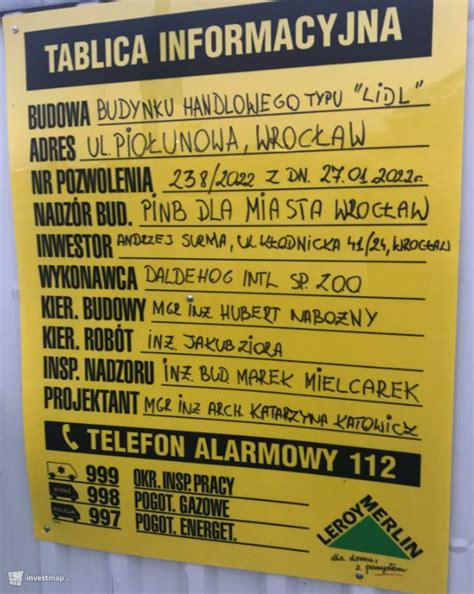 TABLICA INFORMACYJNA
BUDOWA BUDYNKU HANDLOWEGO TYPU "LIDL"
ADRES UL. PIOŁUNOWA, WROCŁAW
NR POZWOLENIA 238/2022 Z DN. 27.01.2022r.
NADZÓR BUD. PINB DLA MIASTA WROCŁAW
INWESTOR ANDRZEJ SURMA, UL. KŁODNICKA 41/24, WROCŁAW
WYKONAWCA DALDEHOG INTL SP. ZOO
KIER. BUDOWY MGR INŻ HUBERT NABOŻNY
KIER. ROBÓT INŻ. JAKUB ZIOŁA
INSP. NADZORU INŻ. BUD. MAREK MIELCAREK
PROJEKTANT MGR INŻ ARCH. KATARZYNA KATOWICZ
TELEFON ALARMOWY 112
999 OKR. INSP. PRACY
STRAŻ 998 POGOT. GAZOWE
POLICJA 997 POGOT. ENERGET.
LEROY MERLIN
dla domu,
z pomysłem
investmap